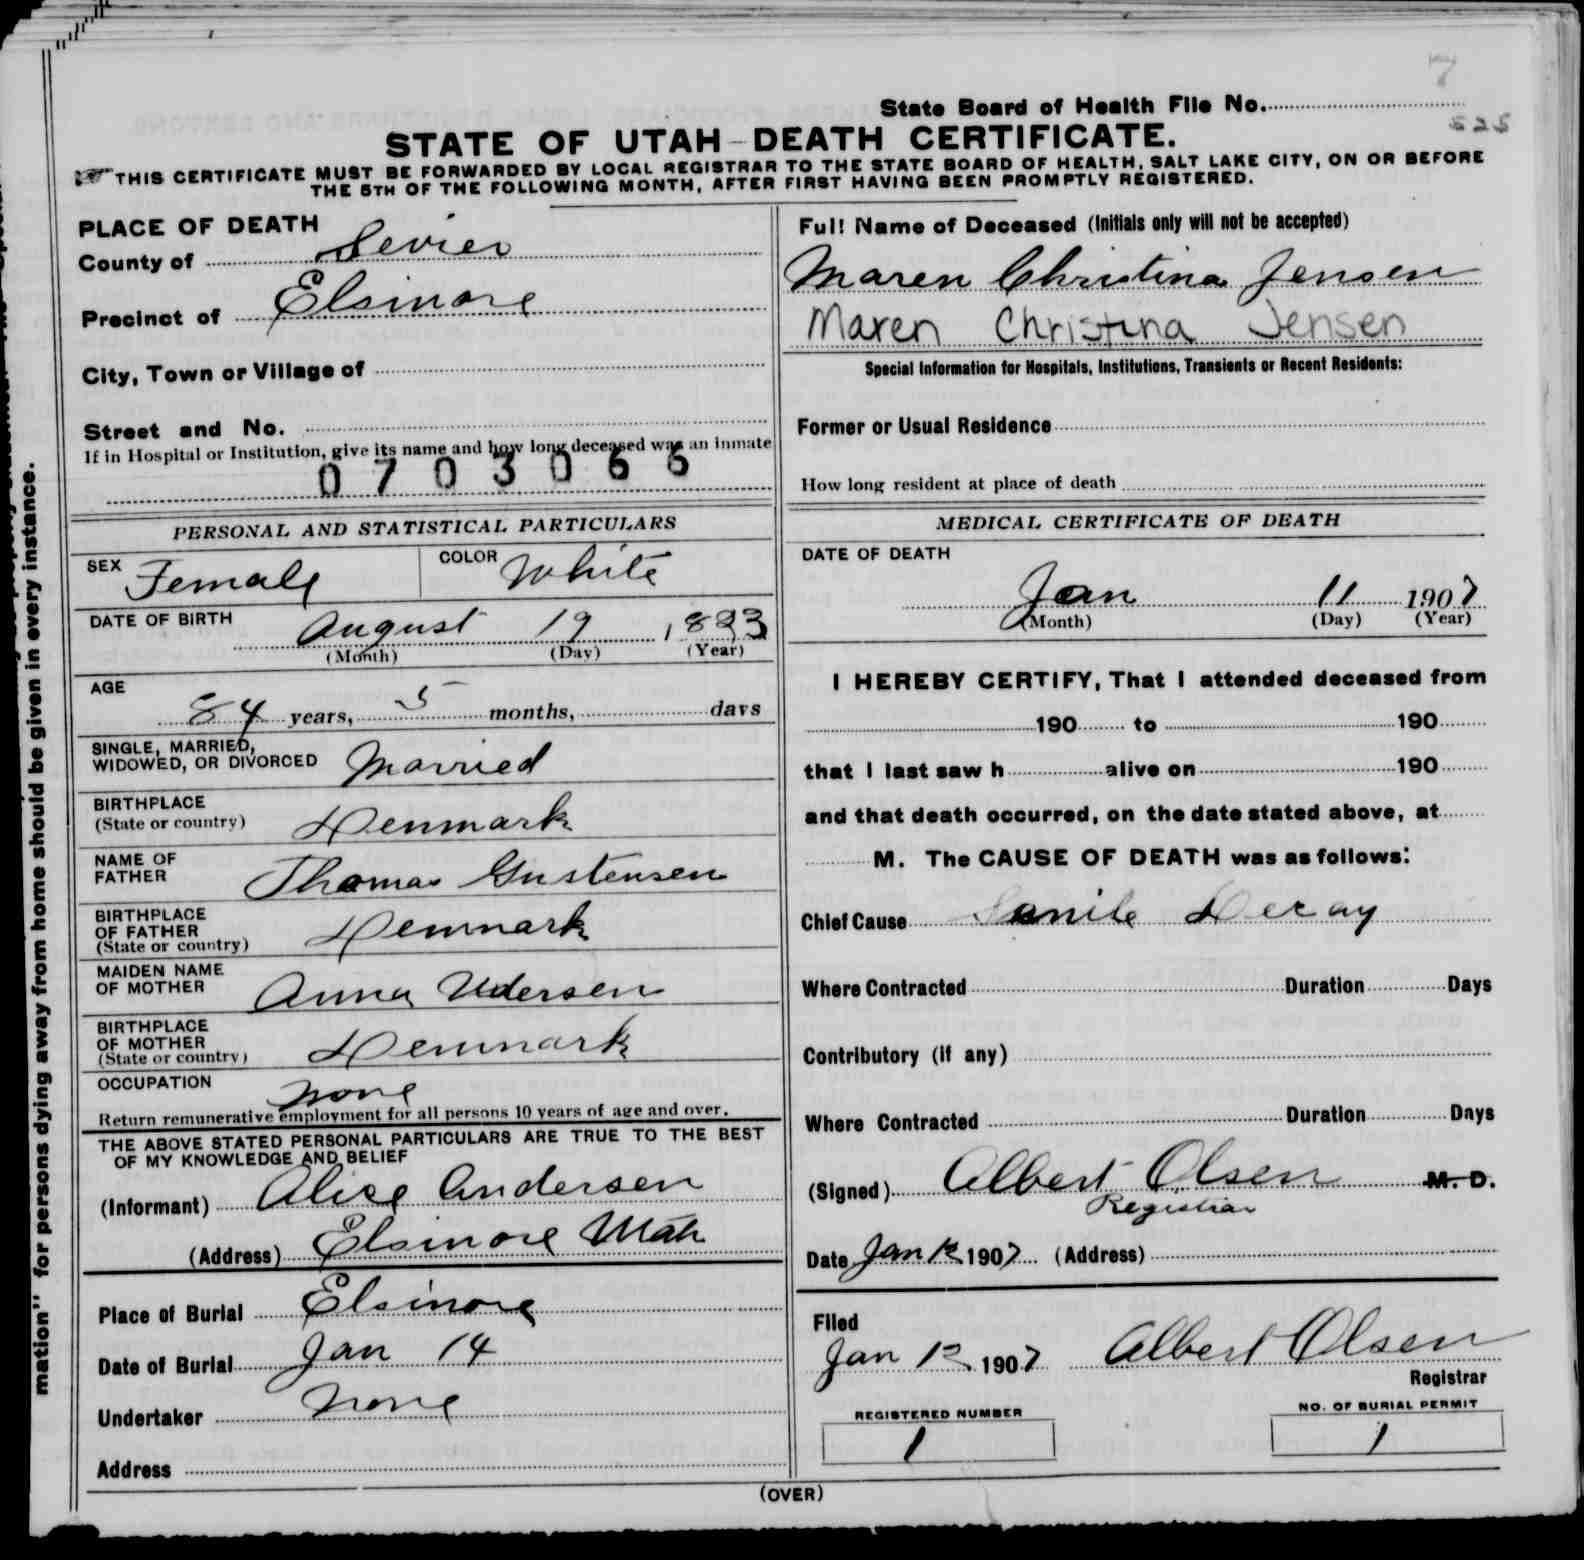 7
State Board of Health File No.
525
STATE OF UTAH—DEATH CERTIFICATE.
☞THIS CERTIFICATE MUST BE FORWARDED BY LOCAL REGISTRAR TO THE STATE BOARD OF HEALTH, SALT LAKE CITY, ON OR BEFORE
THE 5TH OF THE FOLLOWING MONTH, AFTER FIRST HAVING BEEN PROMPTLY REGISTERED.
PLACE OF DEATH
County of Sevier
Precinct of Elsinore
City, Town or Village of
Street and No.
If in Hospital or Institution, give its name and how long deceased was an inmate
0703066
PERSONAL AND STATISTICAL PARTICULARS
SEX Female COLOR White
DATE OF BIRTH August 19 1823
(Month) (Day) (Year)
AGE
84 years, 5 months, days
SINGLE, MARRIED,
WIDOWED, OR DIVORCED Married
BIRTHPLACE
(State or country) Denmark
NAME OF
FATHER Thomas Gustensen
BIRTHPLACE
OF FATHER
(State or country) Denmark
MAIDEN NAME
OF MOTHER Anna
BIRTHPLACE
OF MOTHER
(State or country) Denmark
OCCUPATION None
Return remunerative employment for all persons 10 years of age and over.
THE ABOVE STATED PERSONAL PARTICULARS ARE TRUE TO THE BEST
OF MY KNOWLEDGE AND BELIEF
(Informant) Alice Andersen
(Address) Elsinore Utah
Place of Burial Elsinore
Date of Burial Jan 14
Undertaker None
Address
Full Name of Deceased (Initials only will not be accepted)
Maren Christina Jensen
Maren Christina Jensen
Special Information for Hospitals, Institutions, Transients or Recent Residents:
Former or Usual Residence
How long resident at place of death
MEDICAL CERTIFICATE OF DEATH
DATE OF DEATH
Jan 11 1907
(Month) (Day) (Year)
I HEREBY CERTIFY, That I attended deceased from
190 to 190
that I last saw h alive on 190
and that death occurred, on the date stated above, at
M. The CAUSE OF DEATH was as follows:
Chief Cause Senile Decay
Where Contracted Duration Days
Contributory (if any)
Where Contracted Duration Days
(Signed) Albert Olsen M. D.
Registrar
Date Jan 12 1907 (Address)
Filed
Jan 12 1907 Albert Olsen
Registrar
REGISTERED NUMBER
1
NO. OF BURIAL PERMIT
1
(OVER)
mation" for persons dying away from home should be given in every instance.